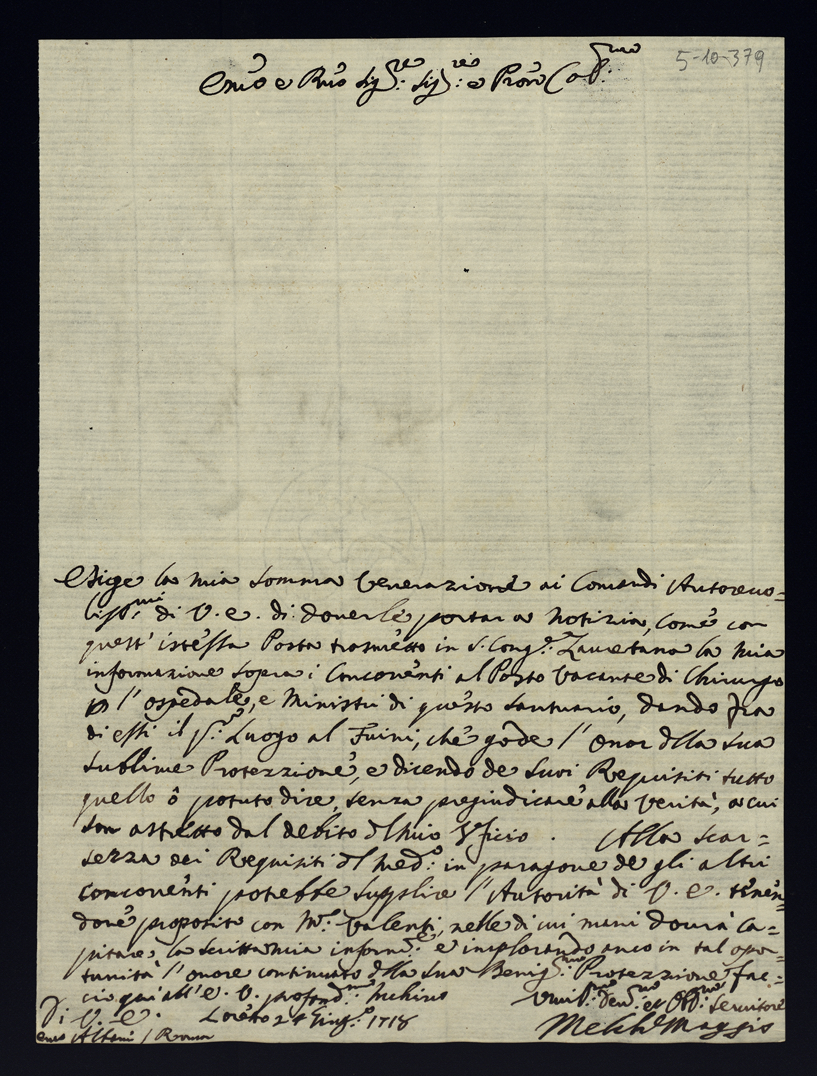 5-10-379
Em̃o e Rm̃o Sig.re Sig.re e Prõne Col.mo
Esige la mia somma Venerazione ai Comandi Autoreuo=
liss.mi di V. E. di douerle portar a Notizia, come con
quest' istessa Posta trasmetto in S. Cong.ne Lauretana la mia
informazione sopra i Concorrenti al Posto Vacante di Chirurgo
l'ospedale, e Ministri di questo Santuario, dando fra
di essi il p.o Luogo al Fuini, che gode l'onor della Sua
Sublime Protezzione, e dicendo de Suoi Requisiti tutto
quello ò potuto dire, senza pregiudicare alla Verità, a cui
son astretto dal debito del mio Vfficio. Alla Scar=
sezza dei Requisiti del med.o in paragone de gli altri
concorrenti potrebbe supplire l'Autorità di V. E. tenen=
done proposito con M.r Valenti, nelle di cui mani dourà ca=
pitare la Scritta mia inform.e e implorando anco in tal opor=
tunità l'onore continuato della Sua Benig.ma Protezzione fac=
cio qui all'E. V. profond.mo Inchino
Di V. E. Loreto 24 Giug.o 1718
Vmil.mo deu.mo et Obb.mo Seruitore
Emo Albani / Roma
Melch.e Maggio